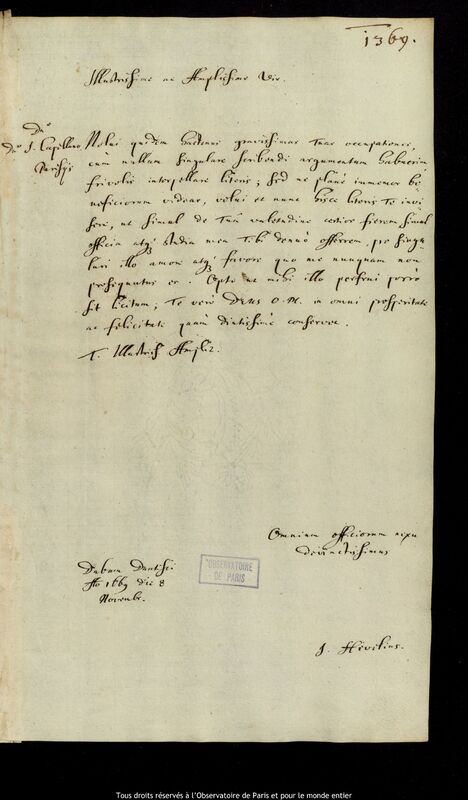 1369.
Illustrissime ac Amplissime Vir.
Dno
Dno J. Capellano
Parisijs
Nolui quidem hactenus gravissimas Tuas occupationes,
cum nullum singulare scribendi argumentum habuerim,
frivolis interpellare literis; sed ne planè immemor be
neficiorum videar, volui et nunc hisce literis Te invi
sere, ut simul de Tua valetudine certior fierem simul
officia atq; studia mea Tibi denuò offerrem, pro singu
lari illo amore atq; favore quo me nunquam non
prosequutus es. Opto ut mihi illo perfrui porrò
sit licitum; Te verò Deus O. M. in omni prosperitate
ac felicitate quàm diutissimè conservet.
T. Illustriss Ampliss.
Omnium officiorum nexu
devinctissimus
Dabam Dantisci
Ao 1669 die 8
Novembr.
J. Hevelius.
OBSERVATOIRE
DE PARIS
Tous droits réservés à l'Observatoire de Paris et pour le monde entier